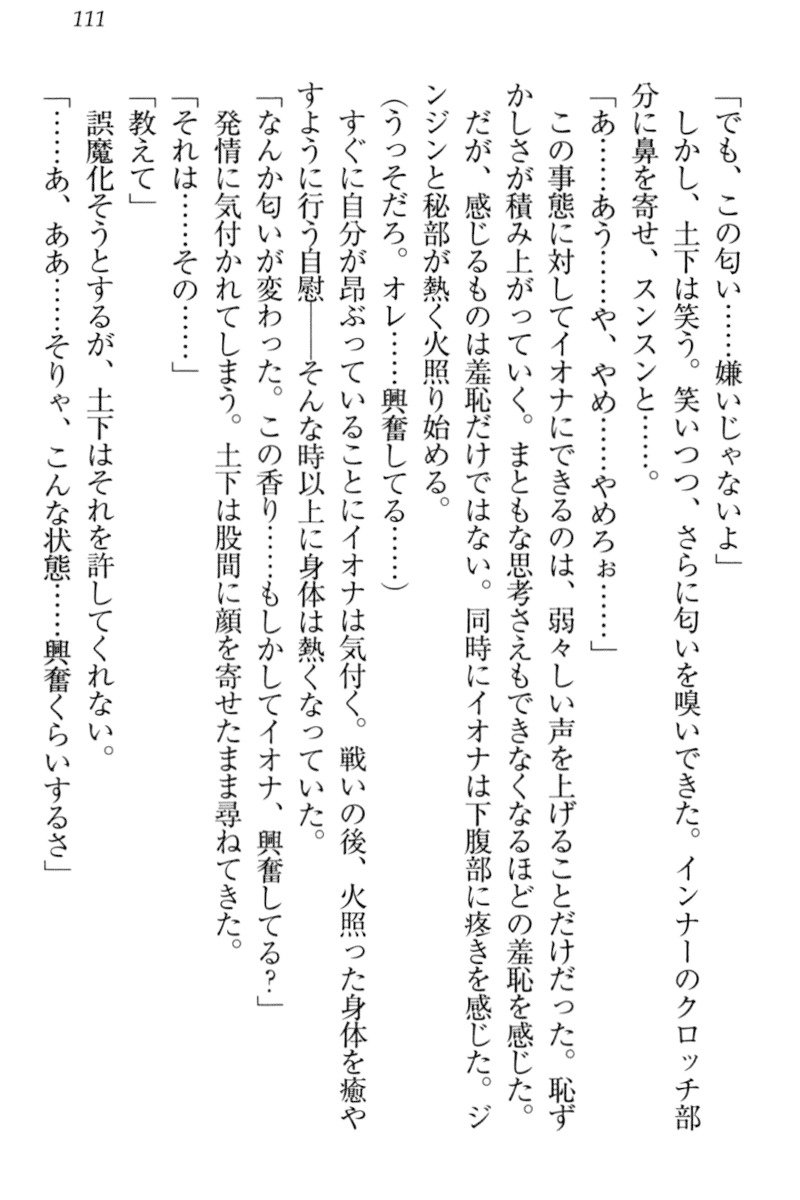 111
「でも、この匂い……嫌いじゃないよ」
しかし、土下は笑う。笑いつつ、さらに匂いを嗅いできた。インナーのクロッチ部
分に鼻を寄せ、スンスンと……。
「あ……あう……や、やめ……やめろぉ……」
この事態に対してイオナにできるのは、弱々しい声を上げることだけだった。恥ず
かしさが積み上がっていく。まともな思考さえもできなくなるほどの羞恥を感じた。
だが、感じるものは羞恥だけではない。同時にイオナは下腹部に疼きを感じた。ジ
ンジンと秘部が熱く火照り始める。
(うっそだろ。オレ……興奮してる……)
すぐに自分が昂ぶっていることにイオナは気付く。戦いの後、火照った身体を癒や
すように行う自慰――そんな時以上に身体は熱くなっていた。
「なんか匂いが変わった。この香り……もしかしてイオナ、興奮してる?」
発情に気付かれてしまう。土下は股間に顔を寄せたまま尋ねてきた。
「それは……その……」
「教えて」
誤魔化そうとするが、土下はそれを許してくれない。
「……あ、ああ……そりゃ、こんな状態……興奮くらいするさ」